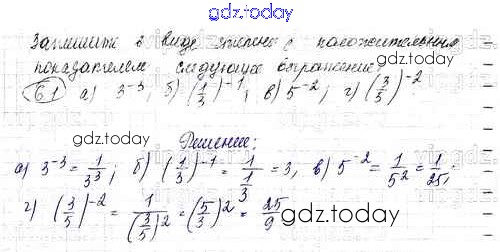 gdz.today
Запишите в виде степени с положительным
показателем следующее выражение:
6.1 а) 3⁻³; б) (1/3)⁻¹; в) 5⁻²; г) (3/5)⁻²
gdz.today
Решение:
а) 3⁻³ = 1/3³; б) (1/3)⁻¹ = 1/(1/3) = 3, в) 5⁻² = 1/5² = 1/25;
г) (3/5)⁻² = 1/(3/5)² = (5/3)² = 25/9
gdz.today